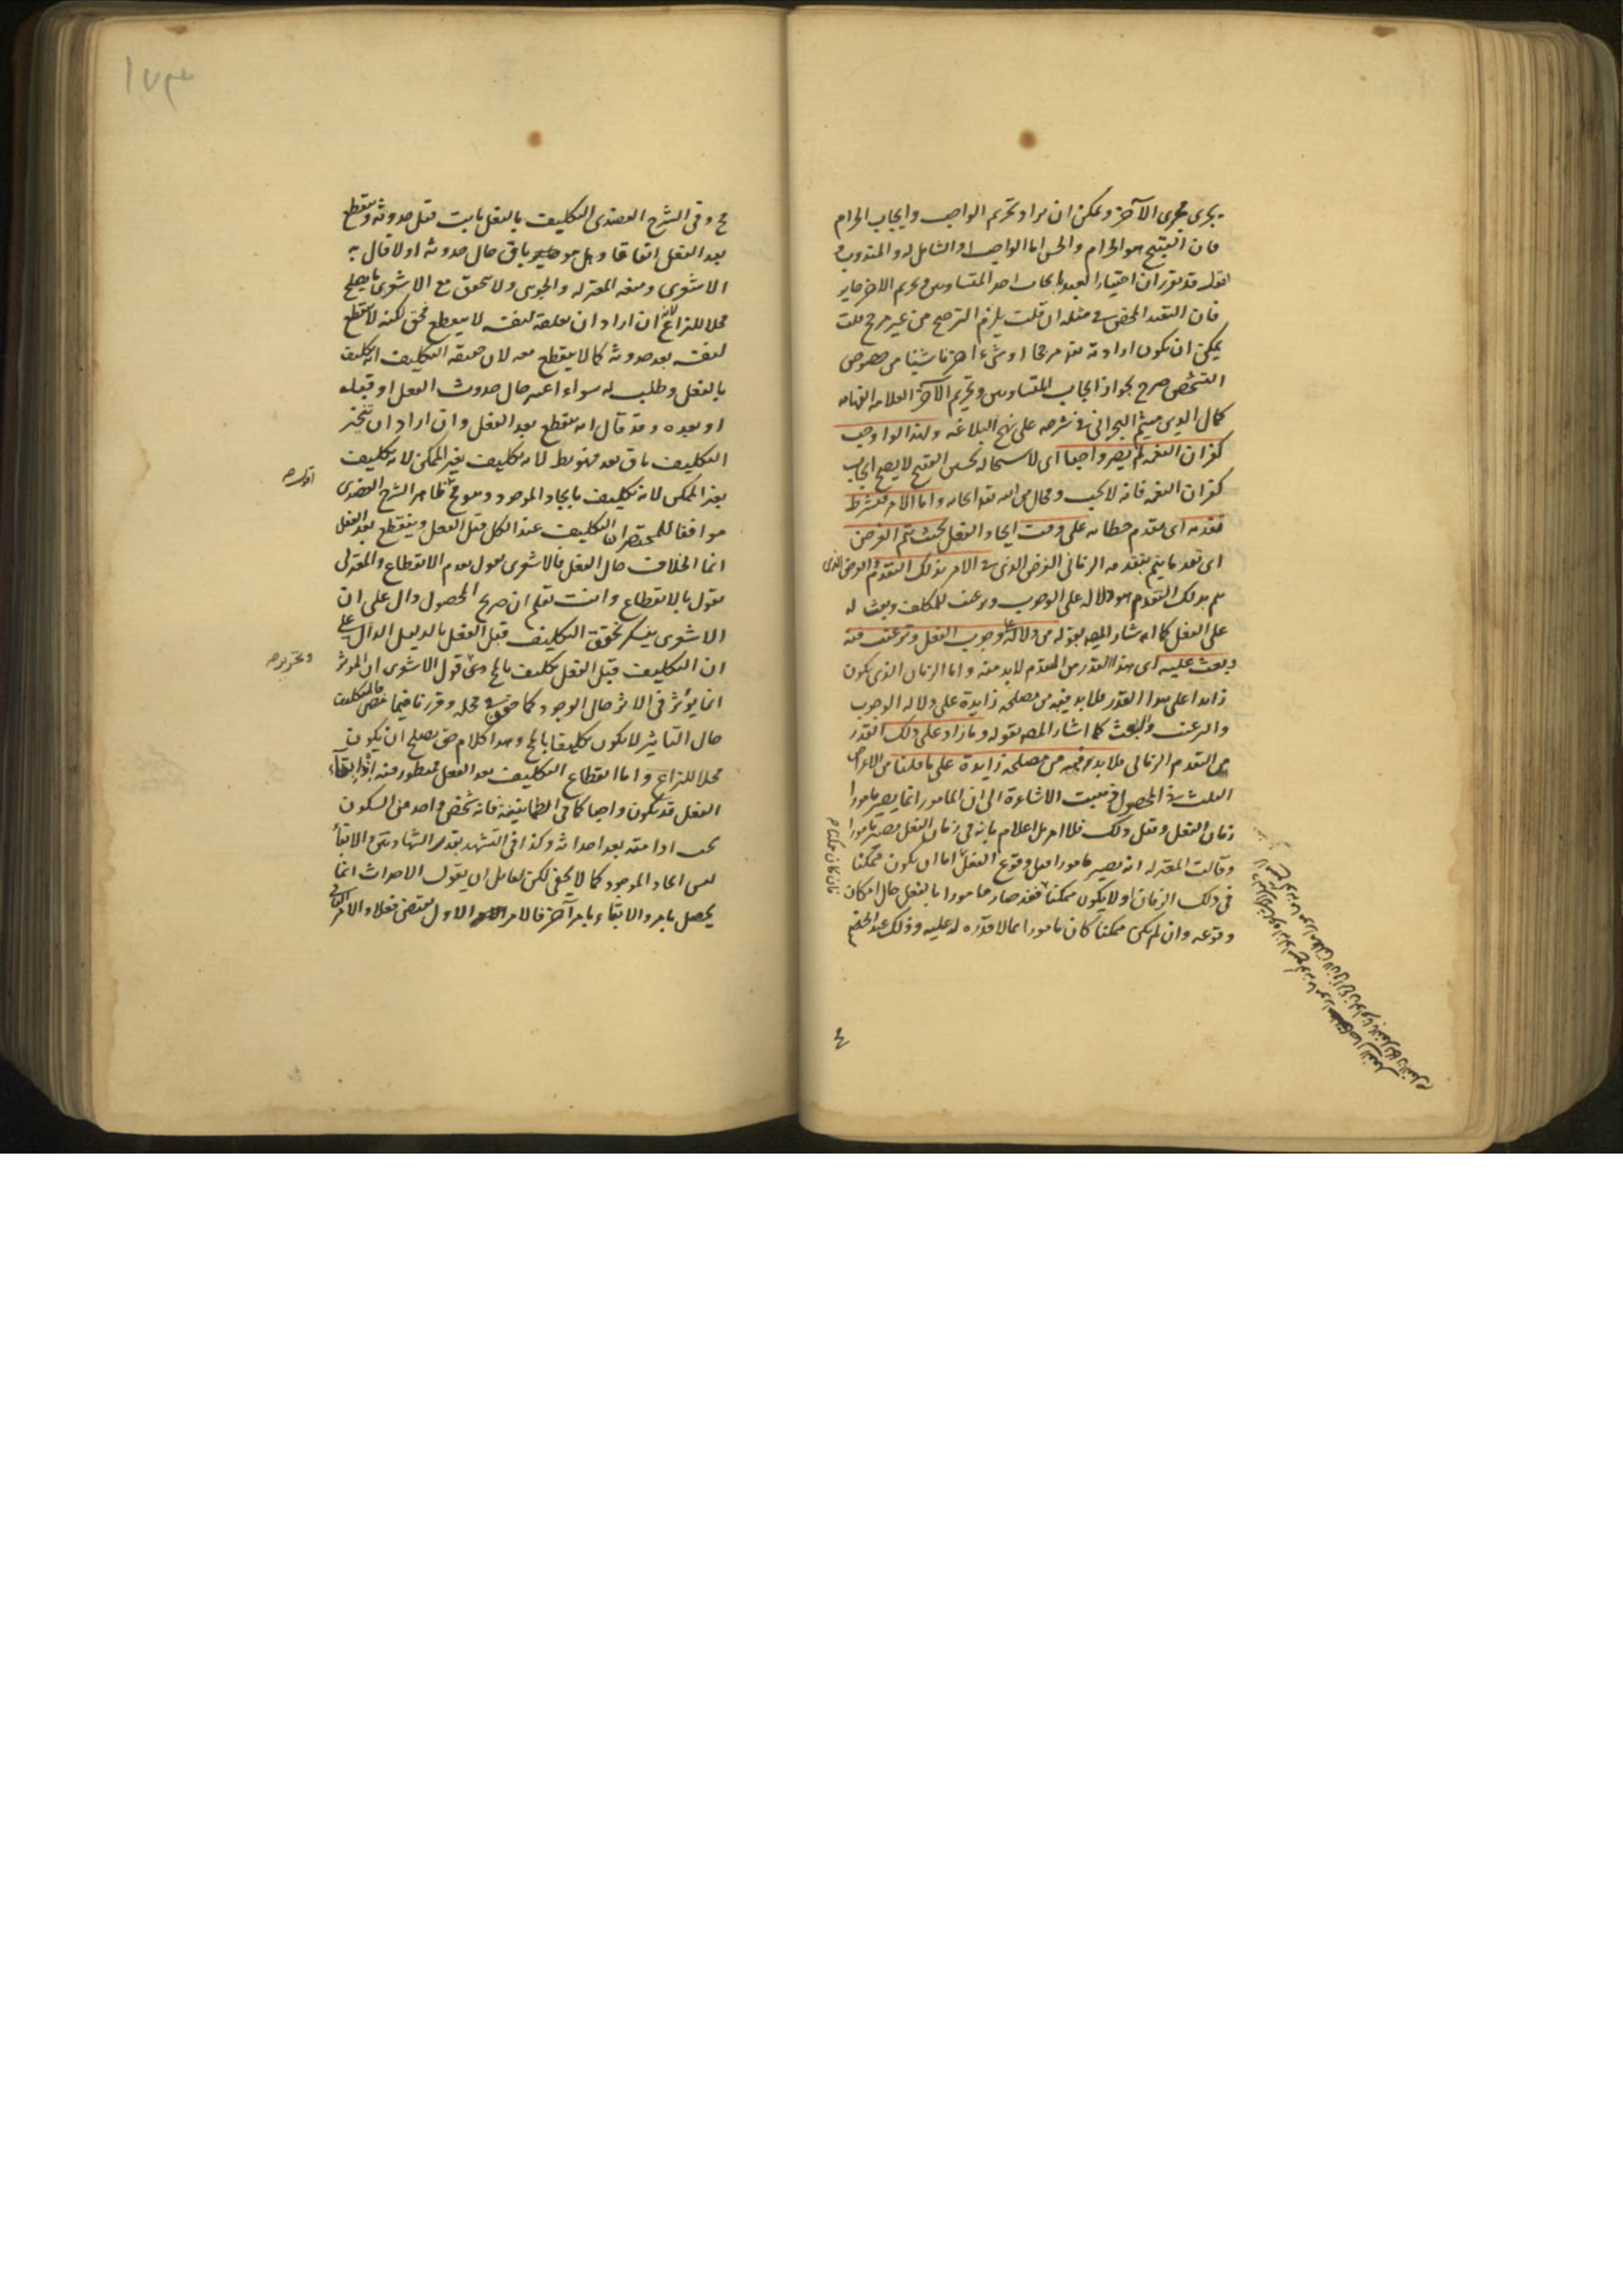 يجرى مجرى الآخر ويمكن ان يراد تحريم الواجب وايجاب الحرام
فان القبيح هو الحرام والحسن اما الواجب او الشامل له والمندوب
فقد تقرر ان اختيار العبد ايجاب احد المتساويين وتحريم الآخر جايز
فان التعبد المحض في مثله ان قلت يلزم الترجيح من غير مرجح قلت
يمكن ان يكون ارادته تعالى مرجحا او شيء آخر ناشيا من خصوص
التشخص صرح بجواز ايجاب المتساويين وتحريم الآخر العلامة الفهامه
كمال الدين ميثم البحرانى في شرحه على نهج البلاغه ولهذا لو اوجب
كفران النعمه لم يصر واجبا اى لاستحالة تحسين القبيح لا يصح ايجاب
كفران النعمه فانه لا يجب ومحال من الله تعالى ايجابه واما الامر فيشترط
تقدمه اى تقدم خطابه على وقت ايجاد الفعل بحيث يتم الغرض
اى بقدر ما يتم بتقدمه الزمانى الغرض الذى في الامر بذلك التقدم والغرض الذى
يتم بذلك التقدم هو دلاله على الوجوب وترغيب للمكلف وبعث له
على الفعل كما اشار المص بقوله من دلالة على وجوب الفعل وترغيب فيه
وبعث عليه اى هذا القدر من التقدم لابد منه واما الزمان الذى يكون
زايدا على هذا القدر فلا بد فيه من مصلحه زايدة على دلالة الوجوب
والترغيب والبعث كما اشار المص بقوله وما زاد على ذلك القدر
من التقدم الزمانى فلا بد فيه من مصلحه زايدة على ما قلنا من الاغراض
الثلث في المحصول ذهبت الاشاعرة الى ان المامور انما يصير مامورا
زمان الفعل وقبل ذلك فلا امر بل اعلام بانه في زمان الفعل يصير مامورا
وقالت المعتزله انه يصير مامورا قبل وقوع الفعل لنا اما ان يكون ممكنا
في ذلك الزمان او لا يكون ممكنا فقد صار مامورا بالفعل حال امكان
وقوعه وان لم يكن ممكنا كان مامورا بما لا قدرة له عليه وذلك عند الخصم
فان كان ممكنا
٤
١٧٣
مح وفى الشرح العضدى التكليف بالفعل ثابت قبل حدوثه وينقطع
بعد الفعل اتفاقا وهل هو باق حال حدوثه اولا قال به
الاشعرى ومنعه المعتزله والجوينى ولا يتحقق مع الاشعرى ما يصلح
محلا للنزاع لانه ان اراد ان تعلقه لنفسه لا ينقطع فحق لكنه لا ينقطع
لنفسه بعد حدوثه كما لا ينقطع معه لان حقيقه التكليف انه تكليف
بالفعل وطلب له سواء اعتبر حال حدوث الفعل او قبله
او بعده وقد قال انه ينقطع بعد الفعل وان اراد ان تنجيز
التكليف باق بعد فهو بط لانه تكليف بغير الممكن لانه تكليف
بغير الممكن لانه تكليف بايجاد الموجود وهو مح ظاهر الشرح العضدى
موافقا للمختصر ان التكليف عند الكل قبل الفعل وينقطع بعد الفعل
انما الخلاف حال الفعل فالاشعرى يقول بعدم الانقطاع والمعتزلى
يقول بالانقطاع وانت تعلم ان صريح المحصول دال على ان
الاشعرى ينكر تحقق التكليف قبل الفعل بالدليل الدال على
ان التكليف قبل الفعل تكليف بالمح وفى قول الاشعرى ان المؤثر
انما يؤثر في الاثر حال الوجود كما حقق في محله وقررنا فيما مضى فالتكليف
حال التاثير لا يكون تكليفا بالمح وهذا كلام حق يصلح ان يكون
محلا للنزاع واما انقطاع التكليف بعد الفعل فمنظور فيه اذ ابقاء
الفعل قد يكون واجبا كما في الطمانينة فانه شخص واحد من السكون
يجب ادامته بعد احداثه وكذا في التشهد بقدر الشهادتين والابقاء
ليس ايجاد الموجود كما لا يخفى لكن لقايل ان يقول الاحداث انما
يحصل بامر والابقاء بامر آخر فالامر الاول يقتضى فعلا والامر الثانى